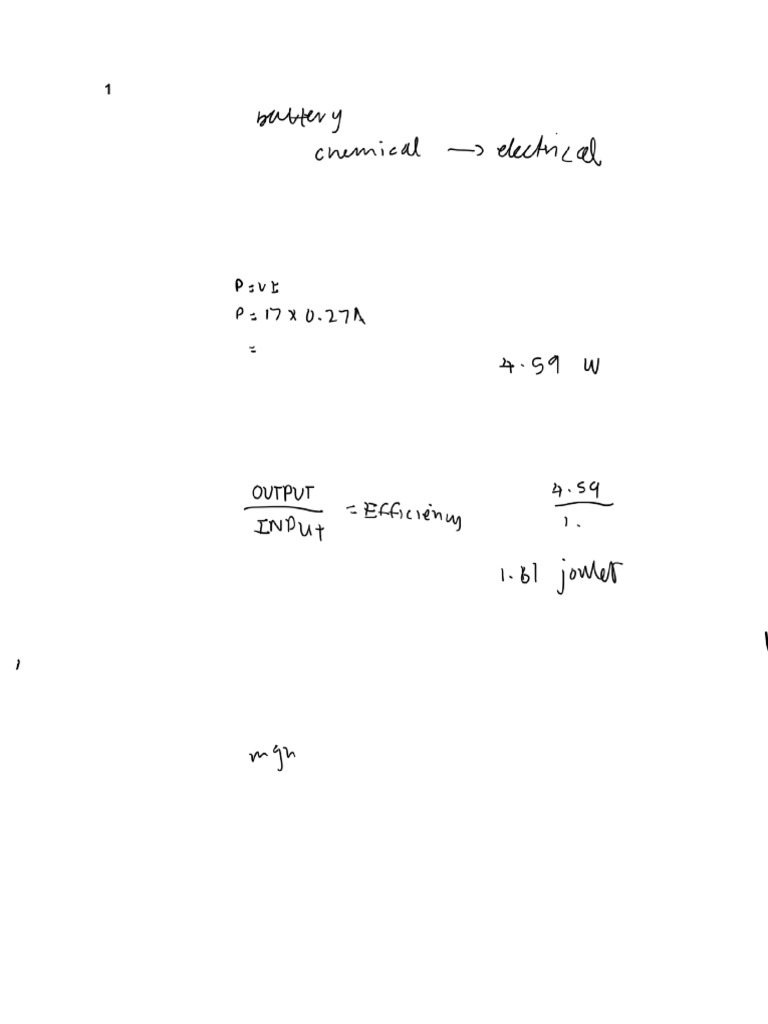 1
battery
chemical → electrical
P = VI
P = 17 x 0.27A
=
4.59 W
OUTPUT
INPUt
= Efficiency
4.59
1.
1.61 joules
mgh